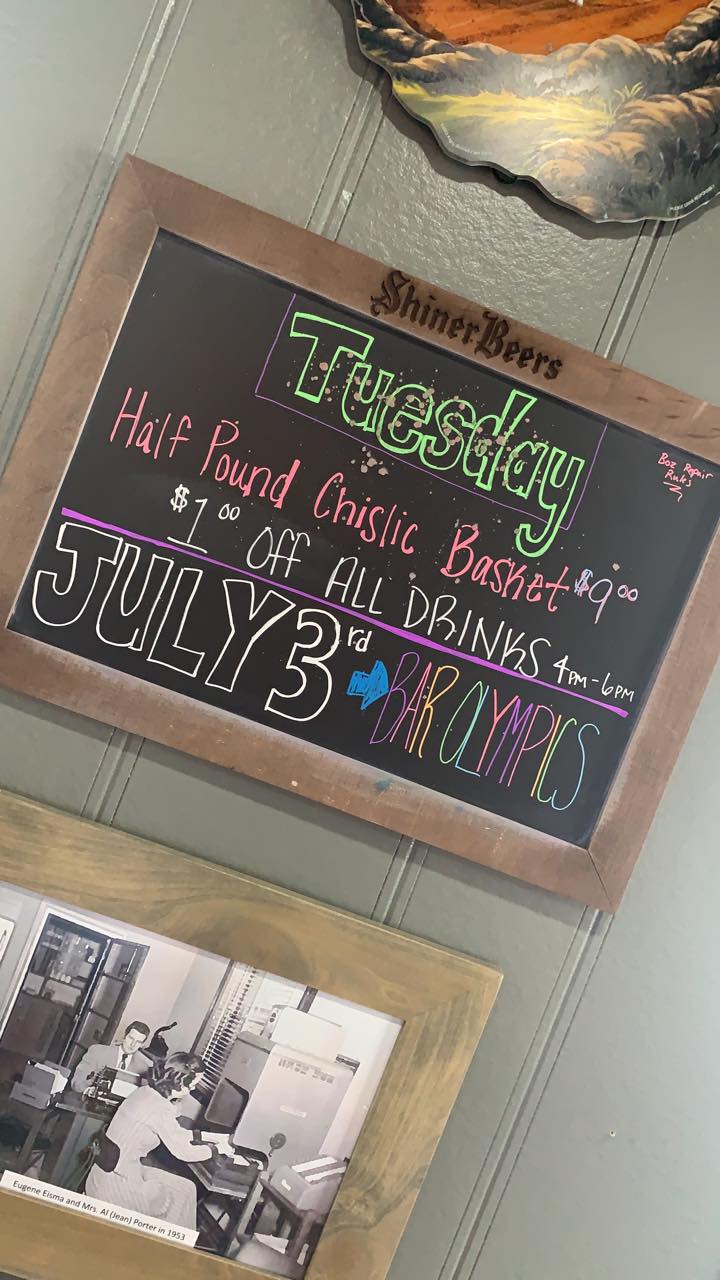 Shiner Beers
Tuesday
Boz Repair
Rules
Half Pound Chislic Basket $9.00
$1.00 Off ALL DRINKS 4PM-6PM
JULY 3rd BAR OLYMPICS
Eugene Eisma and Mrs. Al (Jean) Porter in 1953